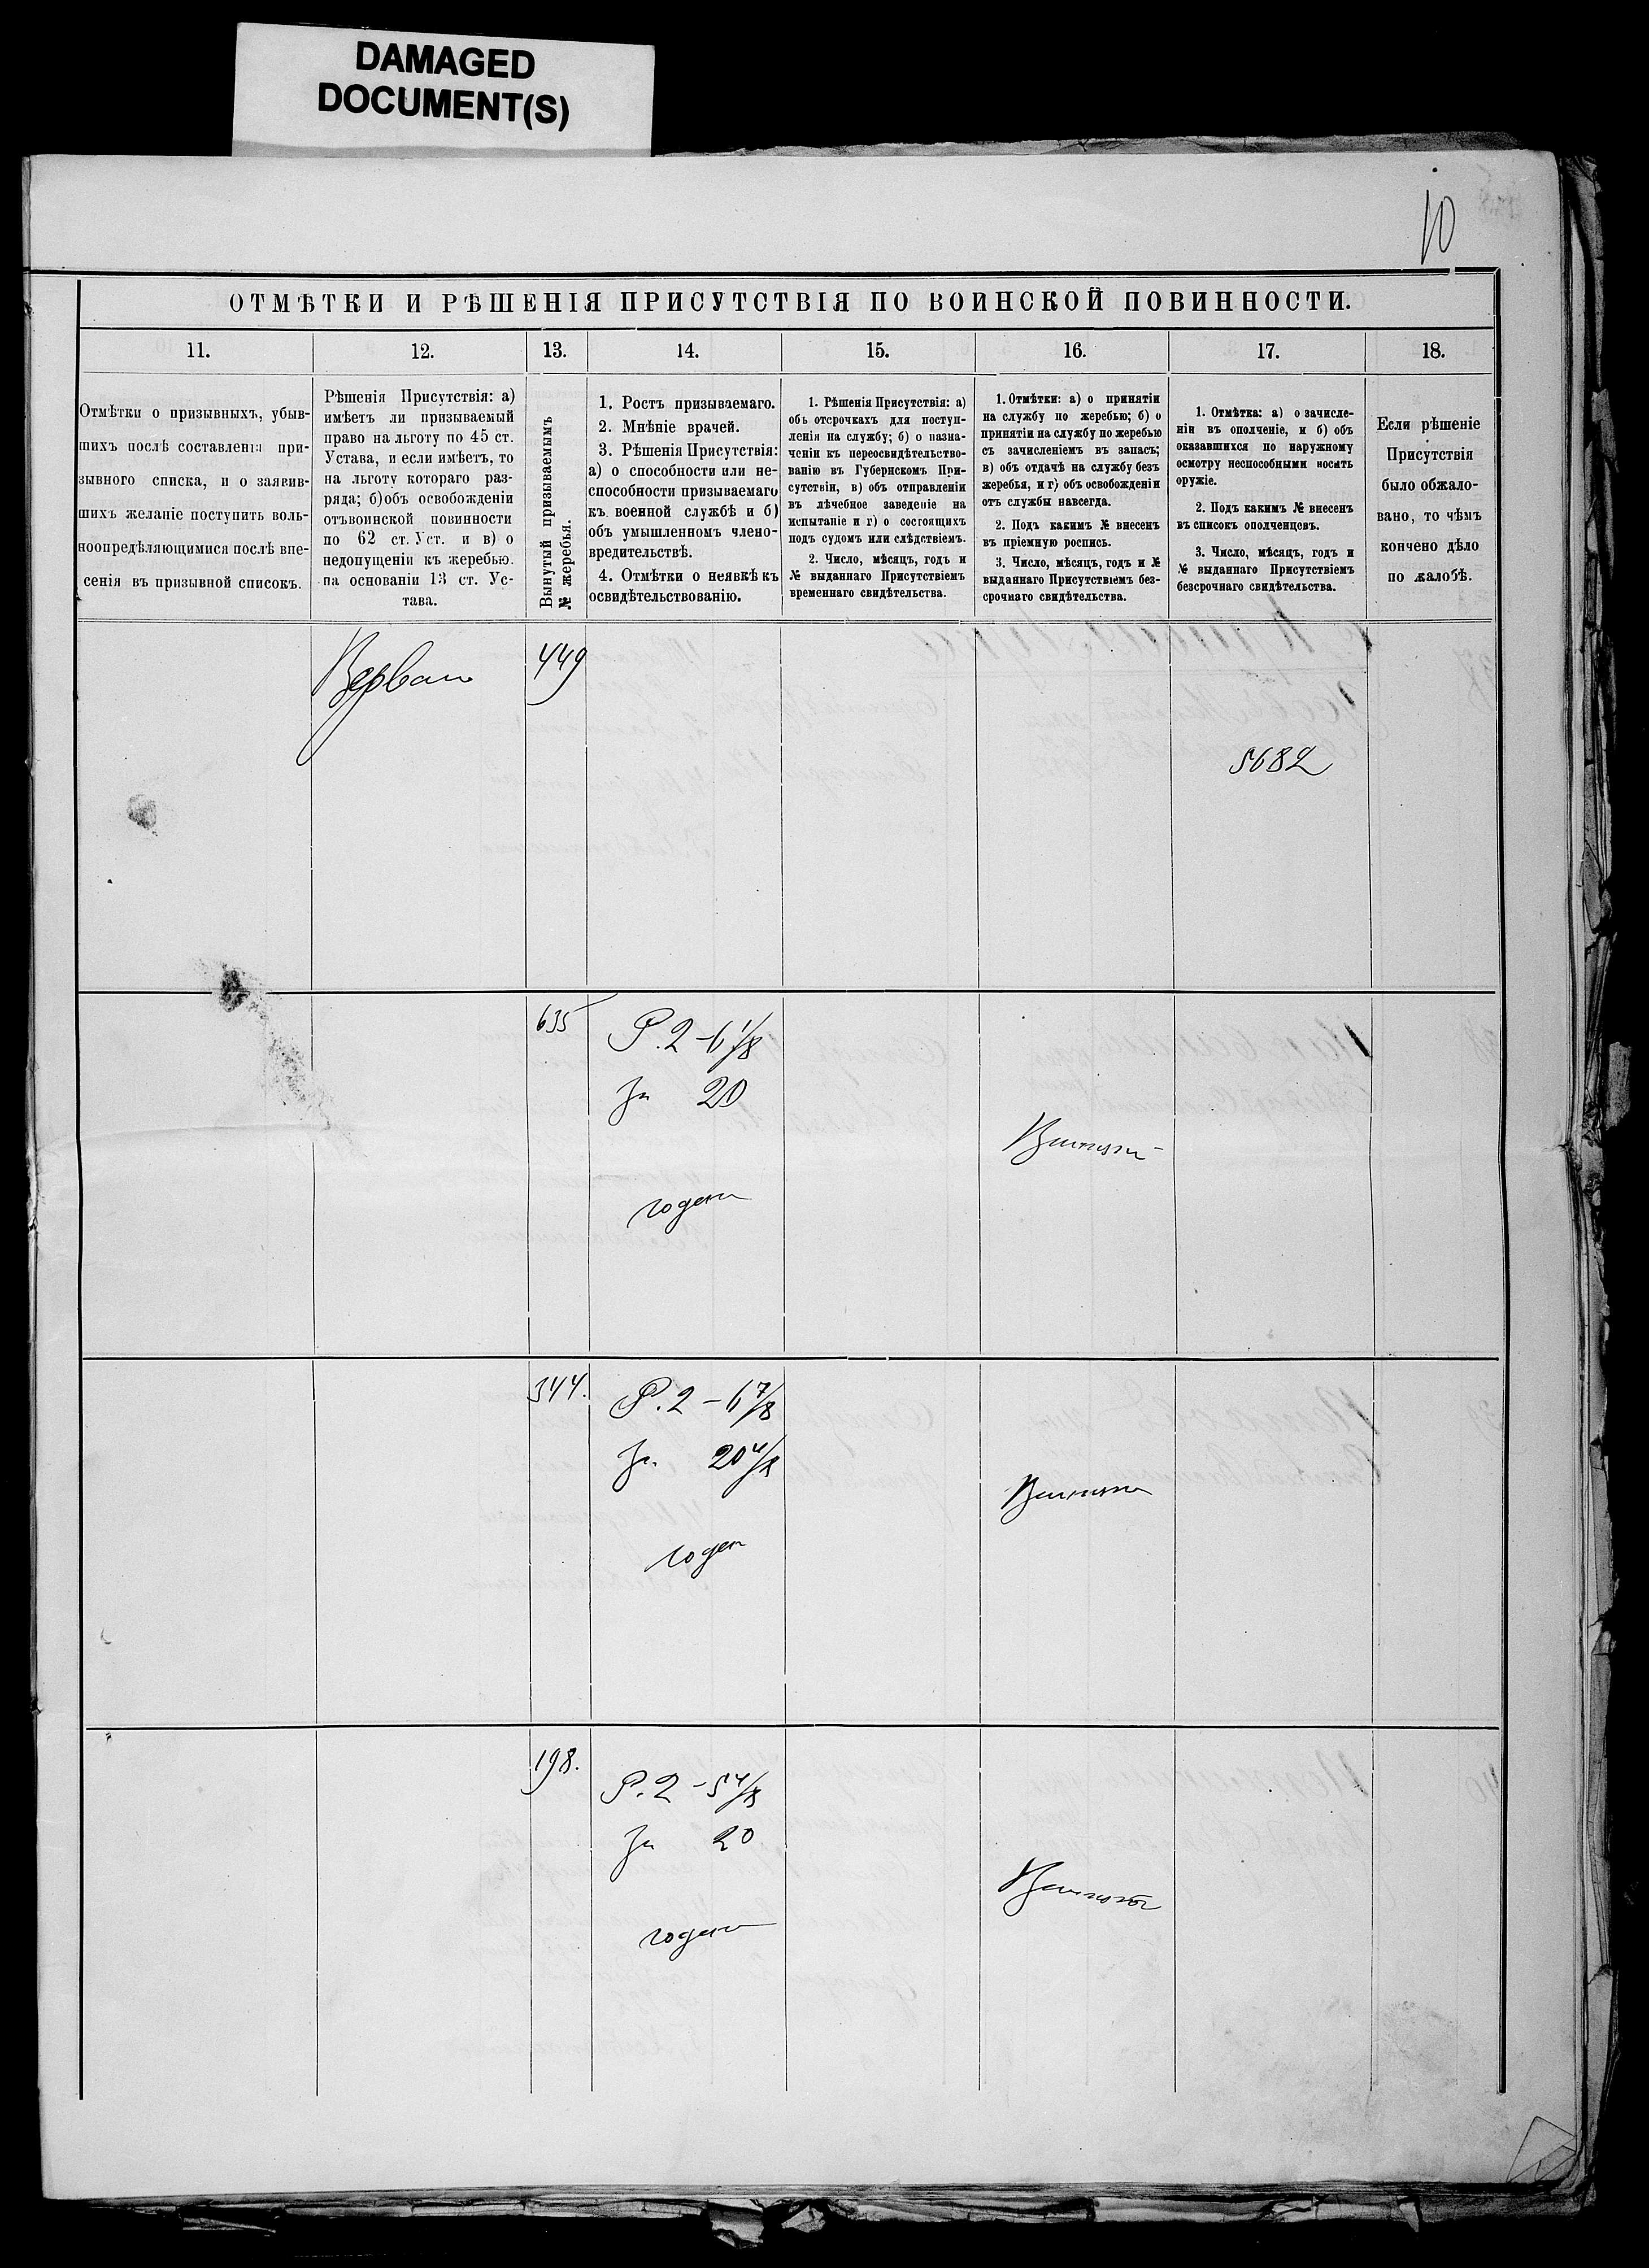 DAMAGED
DOCUMENT(S)
10
ОТМѢТКИ И РѢШЕНІЯ ПРИСУТСТВІЯ ПО ВОИНСКОЙ ПОВИННОСТИ.
11.
12.
13.
14.
15.
16.
17.
18.
Отмѣтки о призывныхъ, убыв-
шихъ послѣ составленія при-
зывного списка, и о заявив-
шихъ желаніе поступить воль-
ноопредѣляющимися послѣ вне-
сенія въ призывной списокъ.
Рѣшенія Присутствія: а)
имѣетъ ли призываемый
право на льготу по 45 ст.
Устава, и если имѣетъ, то
на льготу котораго раз-
ряда; б) объ освобожденіи
отъ воинской повинности
по 62 ст. Уст. и в) о
недопущеніи къ жеребью.
па основаніи 13 ст. Ус-
тава.
Вынутый призываемымъ
№ жеребья.
1. Ростъ призываемаго.
2. Мнѣніе врачей.
3. Рѣшенія Присутствія:
а) о способности или не-
способности призываемаго
къ военной службѣ и б)
объ умышленномъ члено-
вредительствѣ.
4. Отмѣтки о неявкѣ къ
освидѣтельствованію.
1. Рѣшенія Присутствія: а)
объ отсрочкахъ для поступ-
ленія на службу; б) о назна-
ченіи къ переосвидѣтельство-
ванію въ Губернскомъ При-
сутствіи, в) объ отправленіи
въ лѣчебное заведеніе на
испытаніе и г) о состоящихъ
подъ судомъ или слѣдствіемъ.
2. Число, мѣсяцъ, годъ и
№ выданнаго Присутствіемъ
временнаго свидѣтельства.
1. Отмѣтки: а) о принятіи
на службу по жеребью; б) о
принятіи на службу по жеребью
съ зачисленіемъ въ запасъ;
в) объ отдачѣ на службу безъ
жеребья, и г) объ освобожденіи
отъ службы навсегда.
2. Подъ какимъ № внесенъ
въ пріемную роспись.
3. Число, мѣсяцъ, годъ и №
выданнаго Присутствіемъ без-
срочнаго свидѣтельства.
1. Отмѣтка: а) о зачисле-
ніи въ ополченіе, и б) объ
оказавшихся по наружному
осмотру неспособными носить
оружіе.
2. Подъ какимъ № внесенъ
въ списокъ ополченцевъ.
3. Число, мѣсяцъ, годъ и
№ выданнаго Присутствіемъ
безсрочнаго свидѣтельства.
Если рѣшеніе
Присутствія
было обжало-
вано, то чѣмъ
кончено дѣло
по жалобѣ.
449
5682
635
Р. 2-6 1/8
20
годен
344.
Р. 2-6 7/8
20 4/8
годен
198.
Р. 2-5 4/8
20
годен